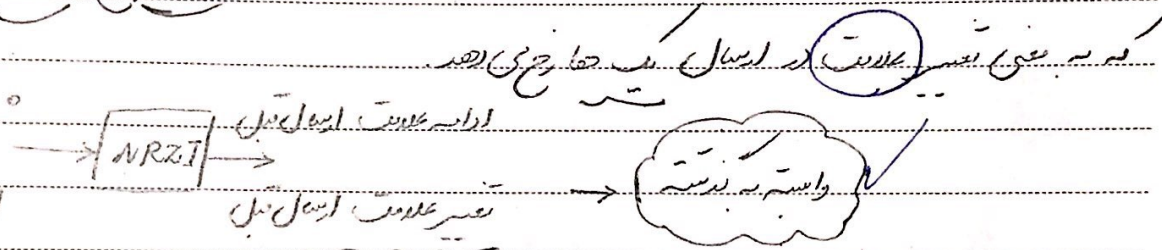 که به معنی تغییر علامت در ارسال یک ها رخ می دهد.
0 ادامه علامت ارسال قبل
NRZI
تغییر علامت ارسال قبل → وابسته به گذشته